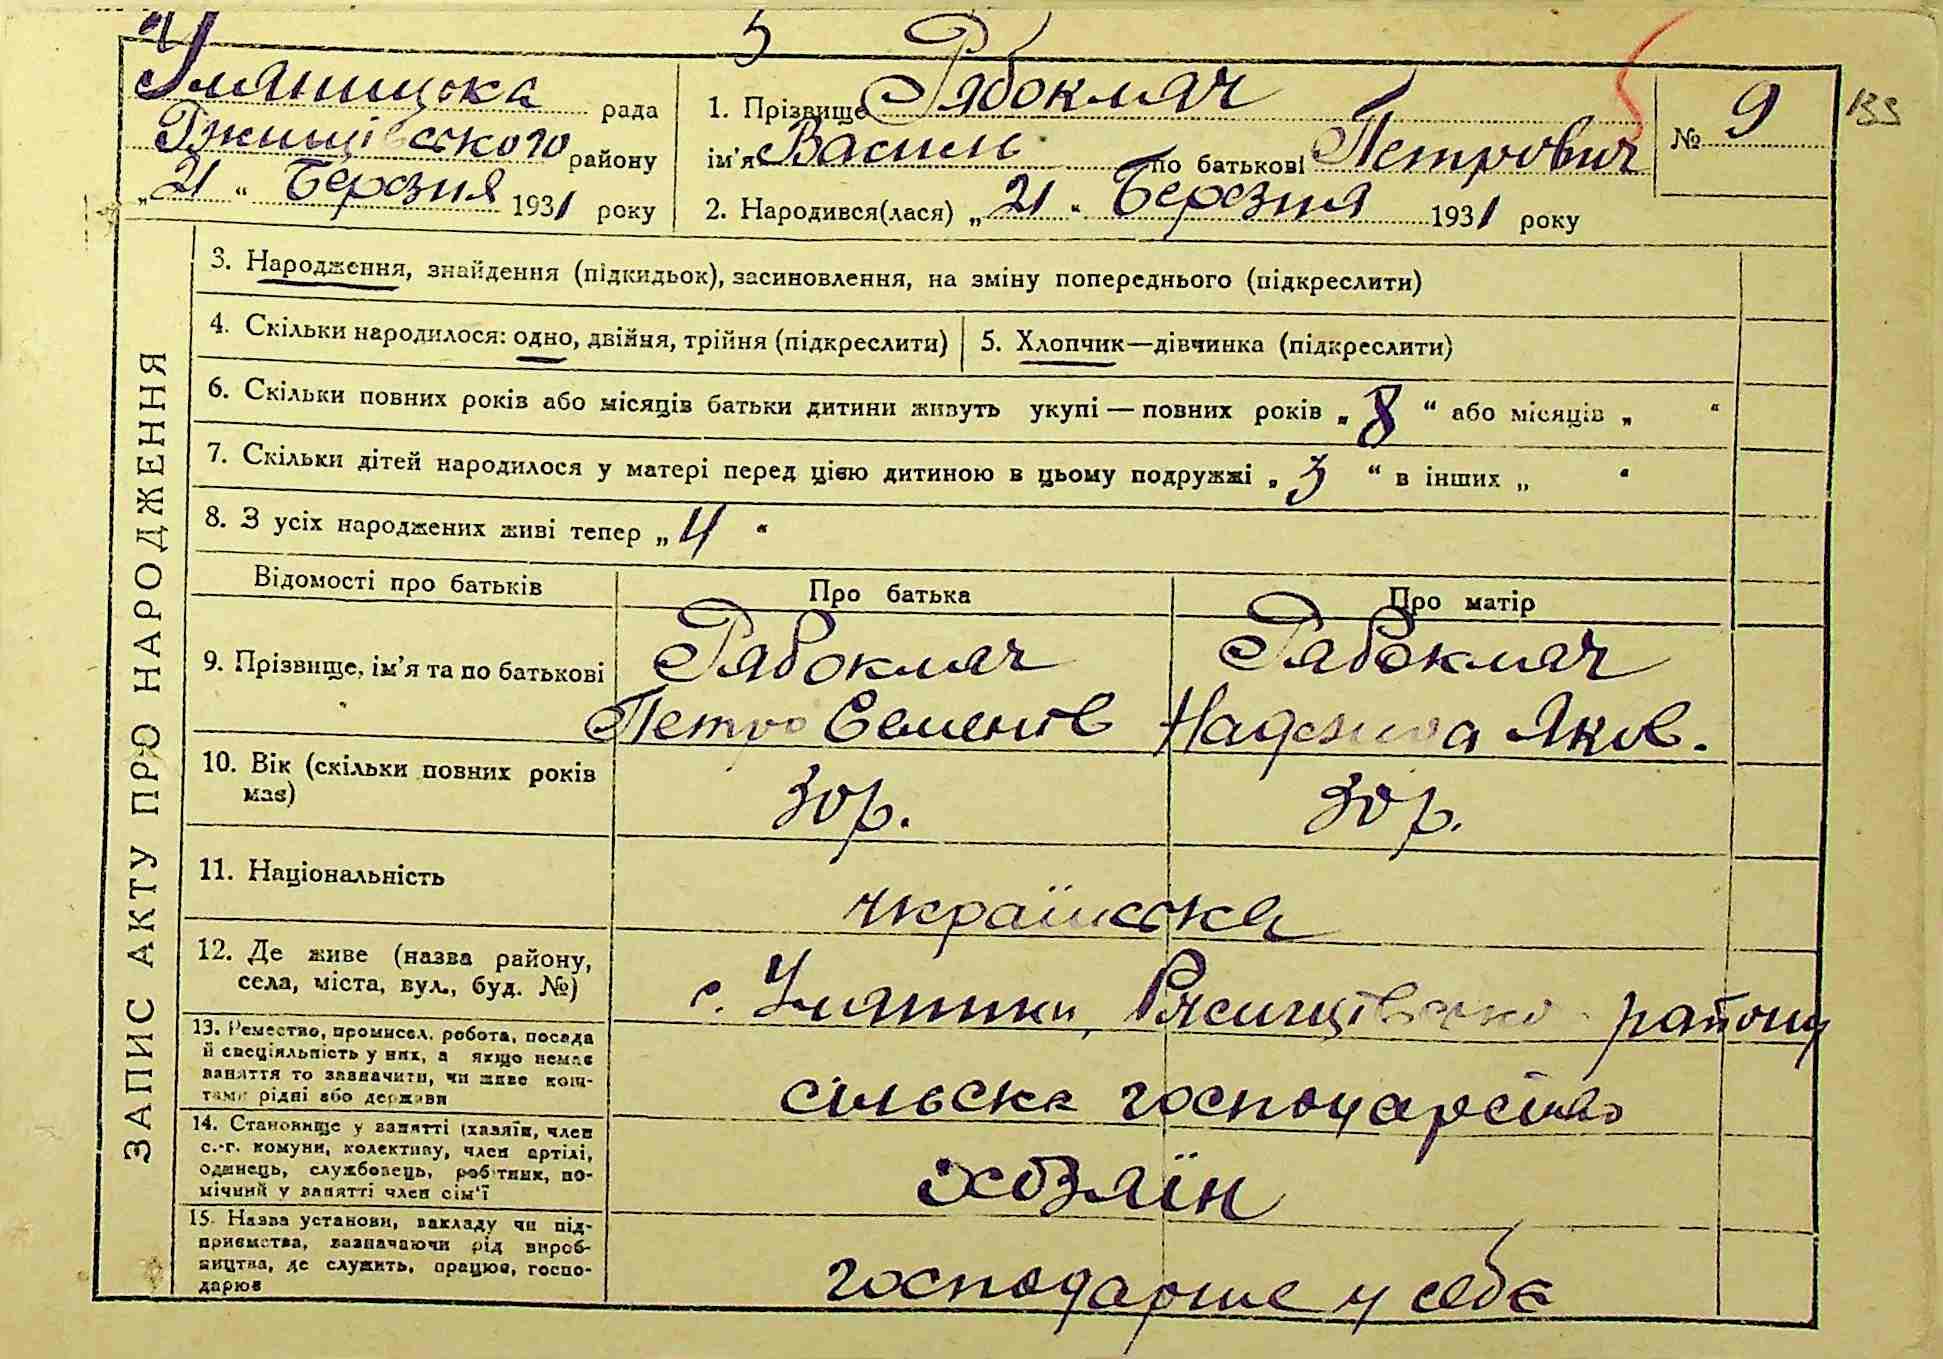 5
Уляницька рада
Ржищівського району
„21“ Березня 1931 року
1. Прізвище Рябокляч
ім’я Василь по батькові Петрович
2. Народився(лася) „21“ Березня 1931 року
№ 9
133
ЗАПИС АКТУ ПРО НАРОДЖЕННЯ
3. Народження, знайдення (підкидьок), засиновлення, на зміну попереднього (підкреслити)
4. Скільки народилося: одно, двійня, трійня (підкреслити)
5. Хлопчик—дівчинка (підкреслити)
6. Скільки повних років або місяців батьки дитини живуть укупі — повних років „8“ або місяців „ “
7. Скільки дітей народилося у матері перед цією дитиною в цьому подружжі „3“ в інших „ “
8. З усіх народжених живі тепер „4“
Відомості про батьків
Про батька
Про матір
9. Прізвище, ім’я та по батькові
Рябокляч
Петро Семенів
Рябокляч
Надежда Яков.
10. Вік (скільки повних років
має)
30 р.
30 р.
11. Національність
українська
12. Де живе (назва району,
села, міста, вул., буд. №)
с. Уляники, району
13. Ремество, промисел, робота, посада
й спеціяльність у них, а якщо немає
заняття то зазначити, чи живе кош-
тами рідні або держави
сільске господарство
14. Становище у занятті (хазяїн, член
с.-г. комуни, колективу, член артілі,
одинець, службовець, робітник, по-
мічний у занятті член сім’ї
хозяїн
15. Назва установи, закладу чи під-
приємства, зазначаючи рід вироб-
ництва, де служить, працює, госпо-
дарює
господарює у себе